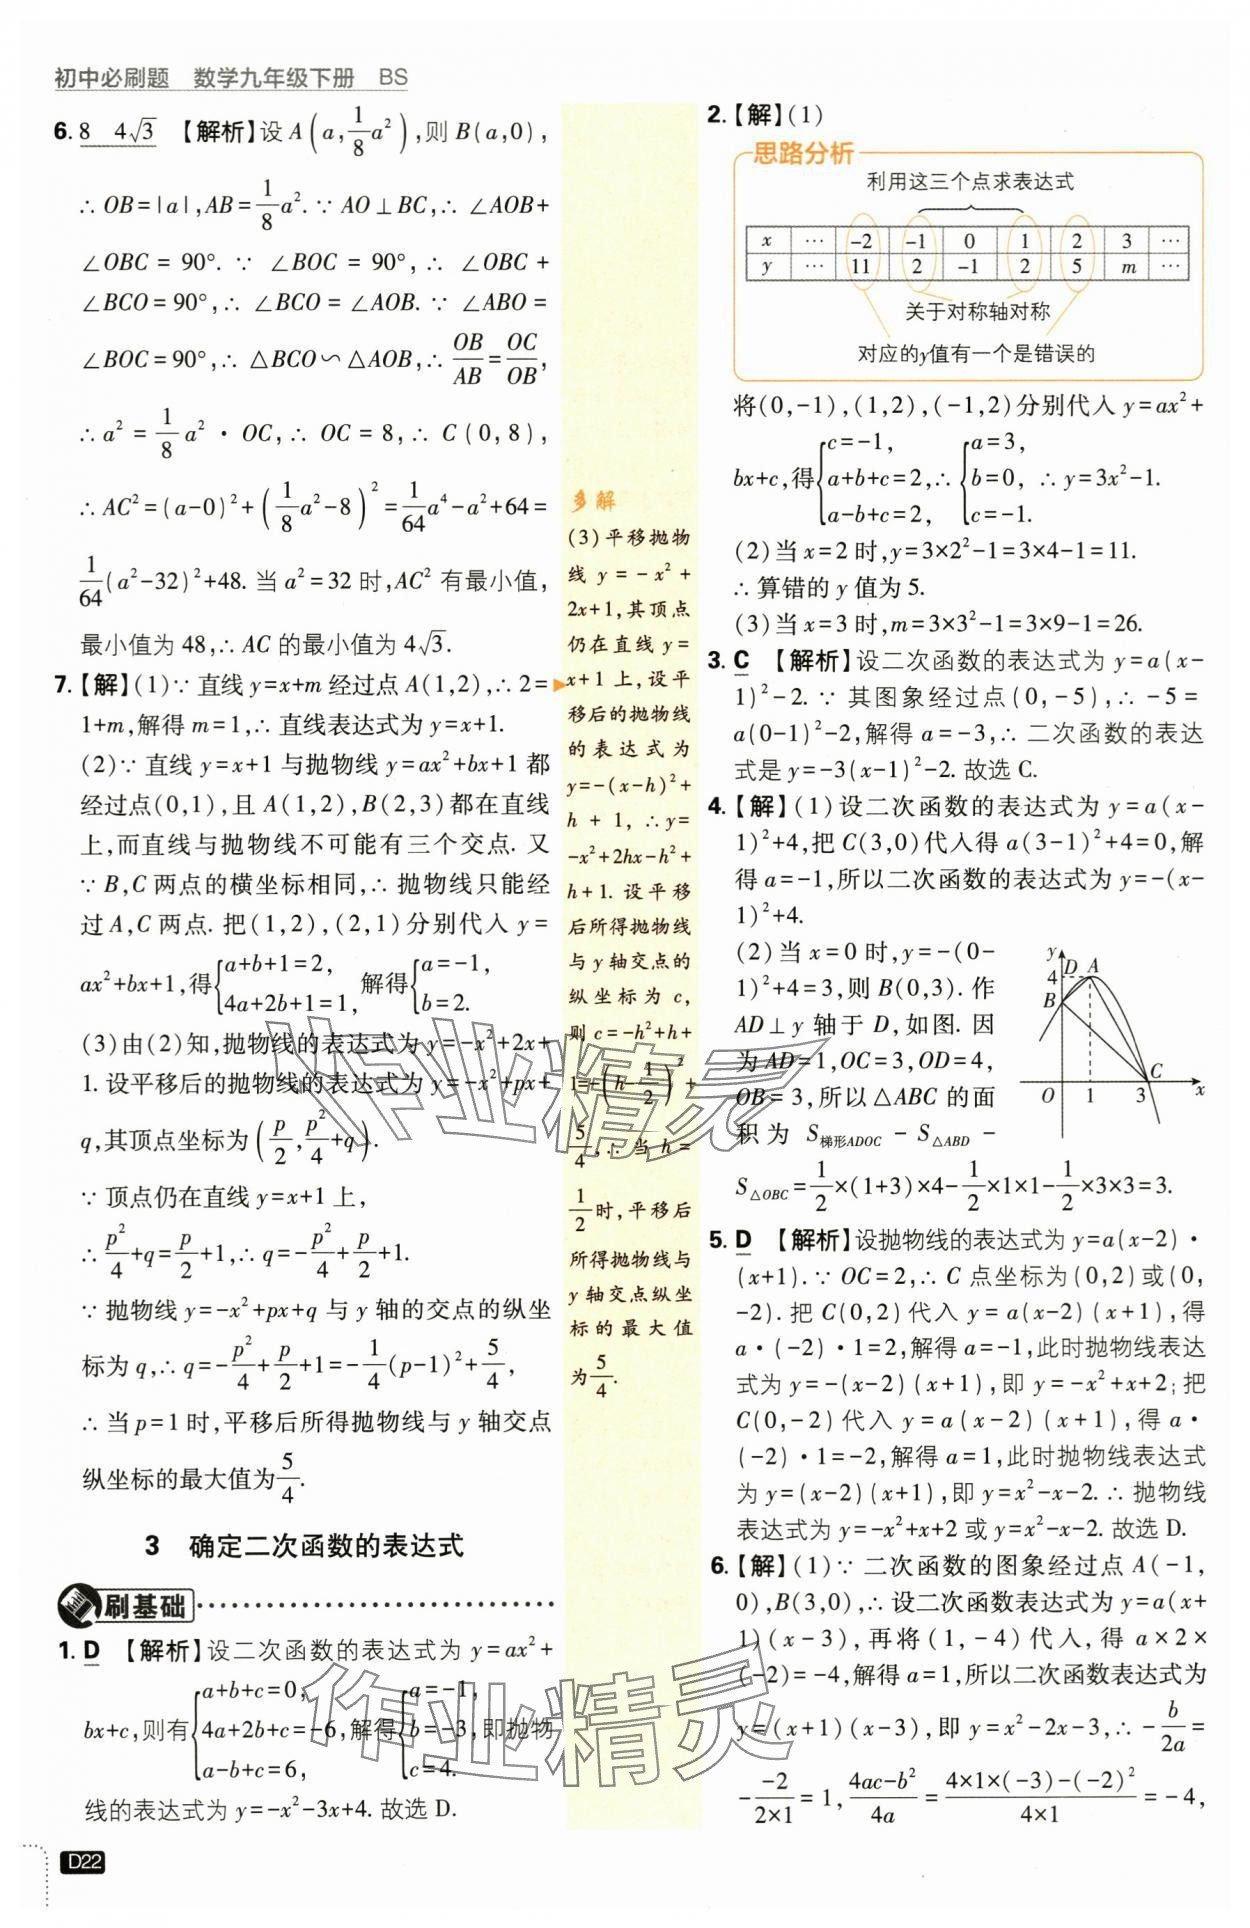 初中必刷题 数学九年级下册 BS
6. 8 4√3 【解析】设 A(a, 1/8 a²), 则 B(a,0),
∴ OB=|a|, AB=1/8 a². ∵ AO⊥BC, ∴ ∠AOB+
∠OBC=90°. ∵ ∠BOC=90°, ∴ ∠OBC+
∠BCO=90°, ∴ ∠BCO=∠AOB. ∵ ∠ABO=
∠BOC=90°, ∴ △BCO∽△AOB, ∴ OB/AB=OC/OB,
∴ a²=1/8 a²·OC, ∴ OC=8, ∴ C(0,8),
∴ AC²=(a-0)²+(1/8 a²-8)²=1/64 a⁴-a²+64=
1/64(a²-32)²+48. 当 a²=32 时, AC² 有最小值,
最小值为 48, ∴ AC 的最小值为 4√3.
7.【解】(1)∵ 直线 y=x+m 经过点 A(1,2), ∴ 2=
1+m, 解得 m=1, ∴ 直线表达式为 y=x+1.
(2)∵ 直线 y=x+1 与抛物线 y=ax²+bx+1 都
经过点(0,1), 且 A(1,2), B(2,3)都在直线
上, 而直线与抛物线不可能有三个交点. 又
∵ B,C 两点的横坐标相同, ∴ 抛物线只能经
过 A,C 两点. 把(1,2),(2,1)分别代入 y=
ax²+bx+1, 得{a+b+1=2, 4a+2b+1=1, 解得{a=-1, b=2.
(3)由(2)知, 抛物线的表达式为 y=-x²+2x+
1. 设平移后的抛物线的表达式为 y=-x²+px+
q, 其顶点坐标为(p/2, p²/4+q).
∵ 顶点仍在直线 y=x+1 上,
∴ p²/4+q=p/2+1, ∴ q=-p²/4+p/2+1.
∵ 抛物线 y=-x²+px+q 与 y 轴的交点的纵坐
标为 q, ∴ q=-p²/4+p/2+1=-1/4(p-1)²+5/4,
∴ 当 p=1 时, 平移后所得抛物线与 y 轴交点
纵坐标的最大值为5/4.
3 确定二次函数的表达式
刷基础
1. D 【解析】设二次函数的表达式为 y=ax²+
bx+c, 则有{a+b+c=0, 4a+2b+c=-6, a-b+c=6, 解得{a=-1, b=-3, c=4. 即抛物
线的表达式为 y=-x²-3x+4. 故选 D.
D22
多解
(3)平移抛物
线 y=-x²+
2x+1, 其顶点
仍在直线 y=
x+1 上, 设平
移后的抛物线
的表达式为
y=-(x-h)²+
h+1, ∴ y=
-x²+2hx-h²+
h+1. 设平移
后所得抛物线
与 y 轴交点的
纵坐标为 c,
则 c=-h²+h+
1=-(h-1/2)²+
5/4, ∴ 当 h=
1/2时, 平移后
所得抛物线与
y 轴交点纵坐
标的最大值
为5/4.
2.【解】(1)
思路分析
利用这三个点求表达式
x ⋯ -2 -1 0 1 2 3 ⋯
y ⋯ 11 2 -1 2 5 m ⋯
关于对称轴对称
对应的y值有一个是错误的
将(0,-1),(1,2),(-1,2)分别代入 y=ax²+
bx+c, 得{c=-1, a+b+c=2, a-b+c=2, ∴{a=3, b=0, c=-1. ∴ y=3x²-1.
(2)当 x=2 时, y=3×2²-1=3×4-1=11.
∴ 算错的 y 值为 5.
(3)当 x=3 时, m=3×3²-1=3×9-1=26.
3. C 【解析】设二次函数的表达式为 y=a(x-
1)²-2. ∵ 其图象经过点(0,-5), ∴ -5=
a(0-1)²-2, 解得 a=-3, ∴ 二次函数的表达
式是 y=-3(x-1)²-2. 故选 C.
4.【解】(1)设二次函数的表达式为 y=a(x-
1)²+4, 把 C(3,0)代入得 a(3-1)²+4=0, 解
得 a=-1, 所以二次函数的表达式为 y=-(x-
1)²+4.
(2)当 x=0 时, y=-(0-
1)²+4=3, 则 B(0,3). 作
AD⊥y 轴于 D, 如图. 因
为 AD=1, OC=3, OD=4,
OB=3, 所以△ABC 的面
积为 S梯形ADOC-S△ABD-
S△OBC=1/2×(1+3)×4-1/2×1×1-1/2×3×3=3.
y
4 D A
B
C
O 1 3 x
5. D 【解析】设抛物线的表达式为 y=a(x-2)·
(x+1). ∵ OC=2, ∴ C 点坐标为(0,2)或(0,
-2). 把 C(0,2)代入 y=a(x-2)(x+1), 得
a·(-2)·1=2, 解得 a=-1, 此时抛物线表达
式为 y=-(x-2)(x+1), 即 y=-x²+x+2; 把
C(0,-2)代入 y=a(x-2)(x+1), 得 a·
(-2)·1=-2, 解得 a=1, 此时抛物线表达式
为 y=(x-2)(x+1), 即 y=x²-x-2. ∴ 抛物线
表达式为 y=-x²+x+2 或 y=x²-x-2. 故选 D.
6.【解】(1)∵ 二次函数的图象经过点 A(-1,
0), B(3,0), ∴ 设二次函数表达式为 y=a(x+
1)(x-3), 再将(1,-4)代入, 得 a×2×
(-2)=-4, 解得 a=1, 所以二次函数表达式为
y=(x+1)(x-3), 即 y=x²-2x-3, ∴ -b/2a=
--2/2×1=1, 4ac-b²/4a=4×1×(-3)-(-2)²/4×1=-4,
作业精灵
作业精灵